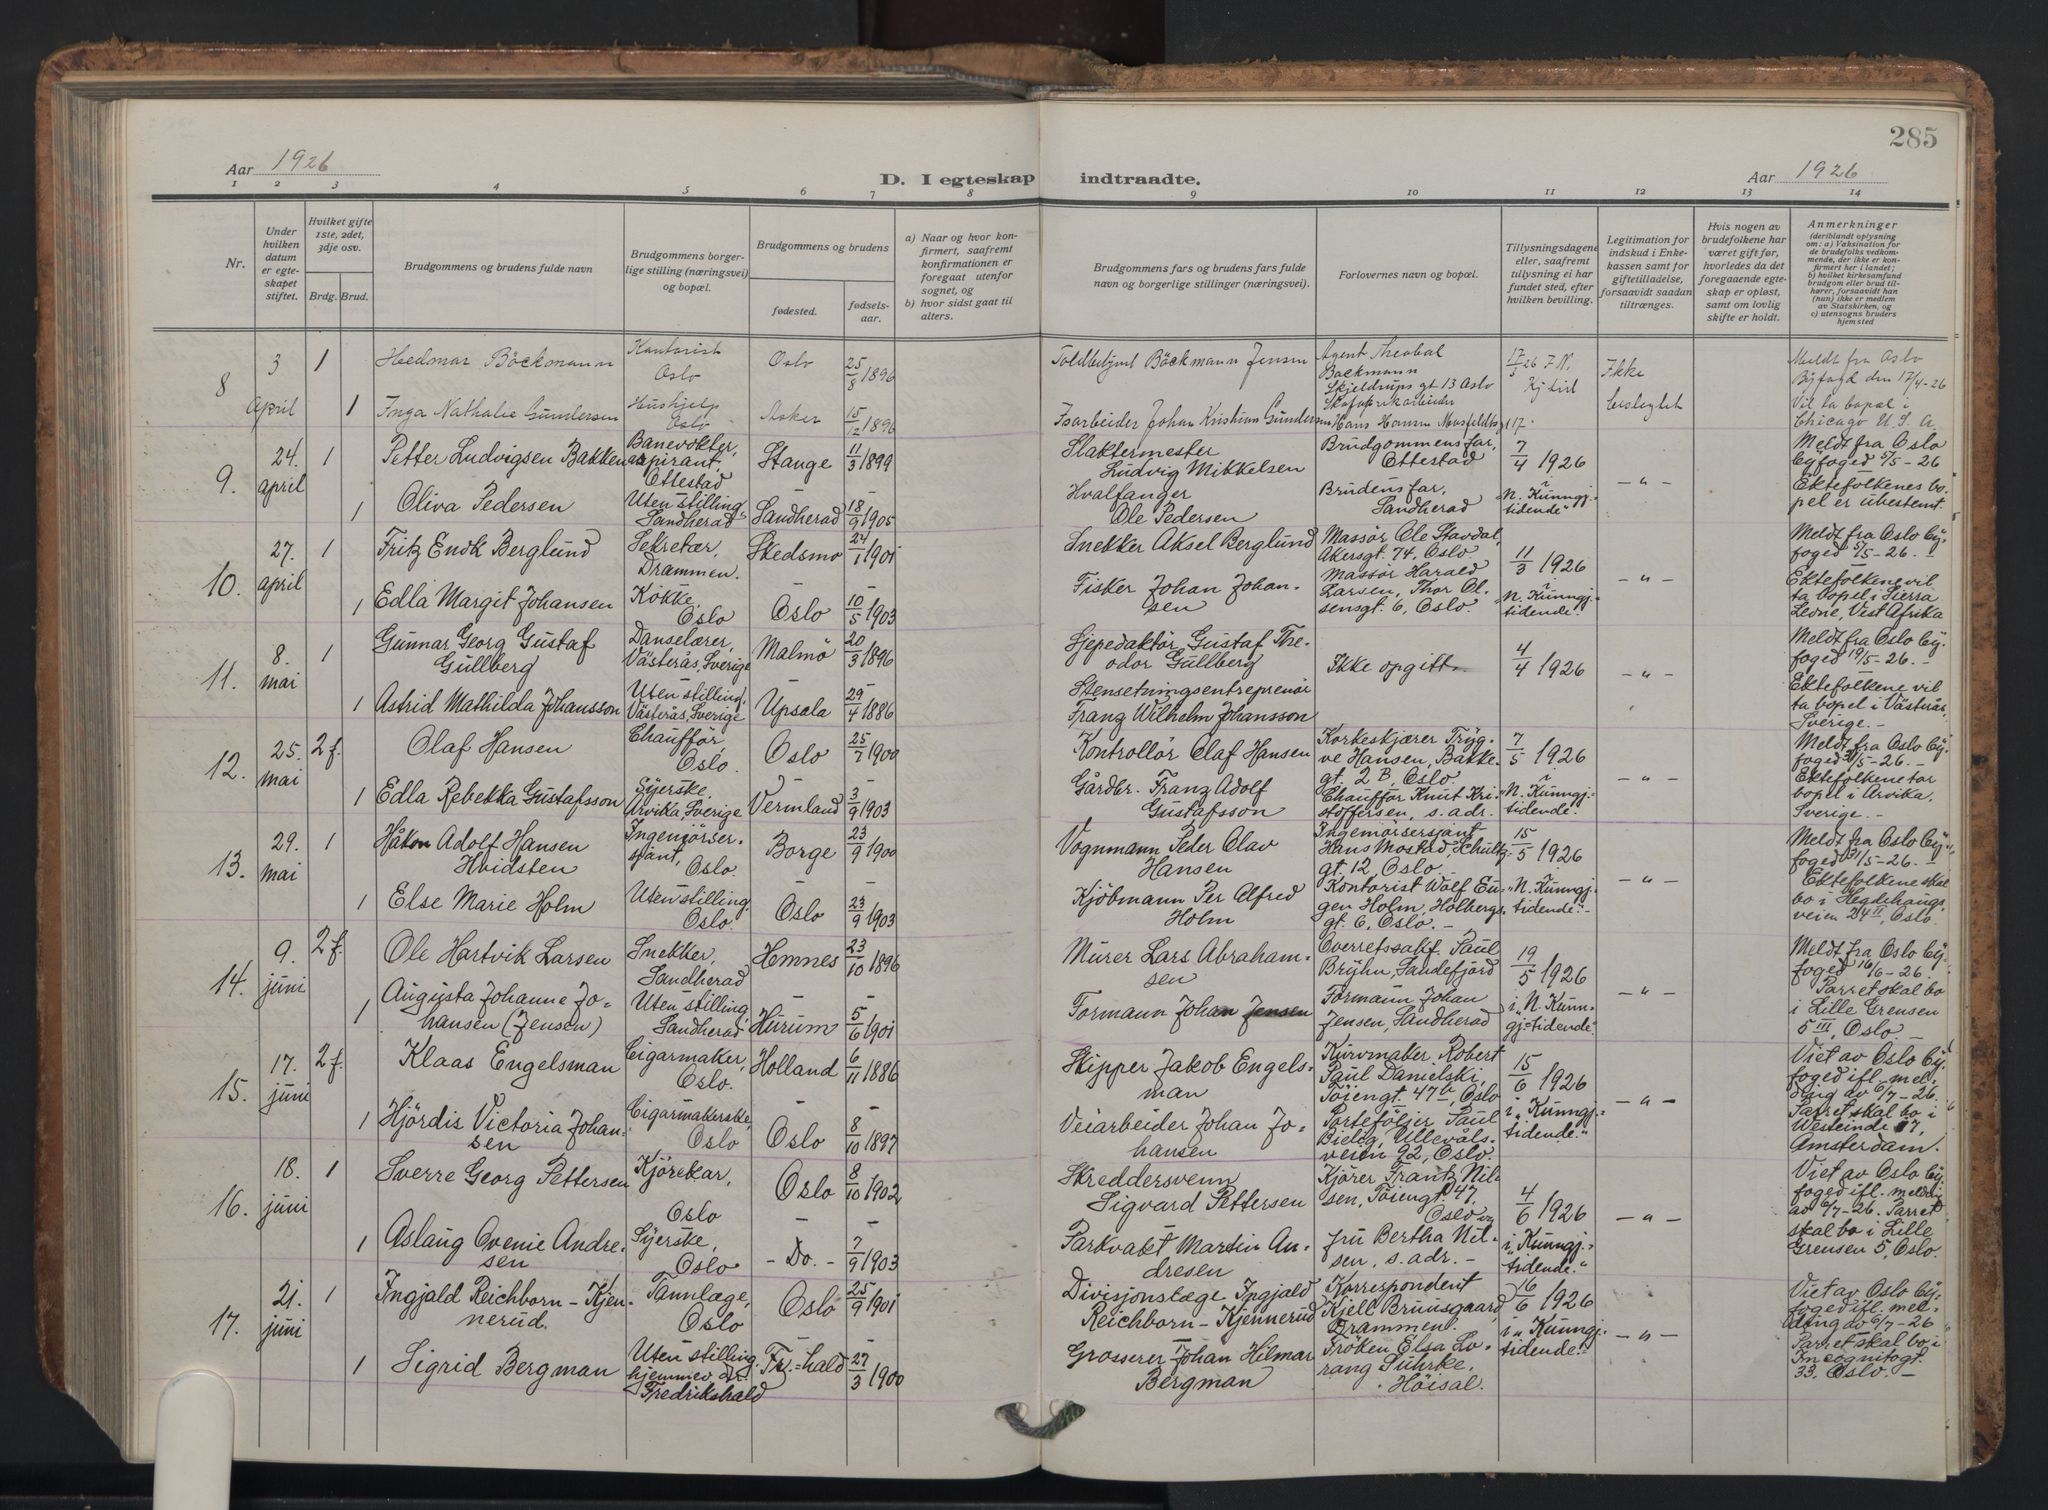 285
Aar 1926
D. I egteskap indtraadte.
Aar 1926
1 2 3 4 5 6 7 8 9 10 11 12 13 14
Nr.
Under hvilken datum er egteskapet stiftet.
Hvilket gifte 1ste, 2det, 3dje osv.
Brdg. Brud.
Brudgommens og brudens fulde navn
Brudgommens borgerlige stilling (næringsvei) og bopæl.
Brudgommens og brudens
fødested.
fødselsaar.
a) Naar og hvor konfirmert, saafremt konfirmationen er foregaat utenfor sognet, og
b) hvor sidst gaat til alters.
Brudgommens fars og brudens fars fulde navn og borgerlige stillinger (næringsvei).
Forlovernes navn og bopæl.
Tillysningsdagene eller, saafremt tillysning ei har fundet sted, efter hvilken bevilling.
Legitimation for indskud i Enkekassen samt for giftetilladelse, forsaavidt saadan tiltrænges.
Hvis nogen av brudefolkene har været gift før, hvorledes da det foregaaende egteskap er opløst, samt om lovlig skifte er holdt.
Anmerkninger
(deriblandt oplysning om: a) Vaksination for de brudefolks vedkommende, der ikke er konfirmert her i landet; b) hvilket kirkesamfund brudgom eller brud tilhører, forsaavidt han (hun) ikke er medlem av Statskirken, og c) utensogns bruders hjemsted
8
3 April
1
Hedmar Böckmann
Kontorist Oslo
Oslo
25/8 1896
Böckmann Jensen
Agent Theobal Bockmann
Skjeldrups gt 13 Oslo
Ikke
Meldt fra Oslo
Byfogd den 17/4-26
1
Inga Nathalie Gundersen
Hushjelp Oslo
Asker
15/12 1896
Isarbeider Johan Kristian Gundersen
Vil ta bopel i
Chicago U. S. A.
9.
24. april
1
Petter Ludvigsen Bakken
Banevokteraspirant, Ottestad
Stange
11/3 1899
Slaktermester
Ludvig Mikkelsen
Brudgommens far,
Ottestad
7/4 1926
N. Kunngj.-
tidende"
- " -
Meldt fra Oslo
Byfoged 5/5-26
Ektefolkenes bo-
pel er ubestemt.
1
Oliva Pedersen
Uten stilling, Sandherad
Sandherad
18/9 1905
Hvalfanger
Ole Pedersen
Brudens far,
Sandherad
10.
27. april
1
Fritz Endk Berglund
Sekretær, Drammen.
Skedsmo
24/1 1901
Snekker Aksel Berglund
Massør Ole Stavdal,
Akersgt. 74, Oslo.
11/3 1926
"N. Kunngj.-
tidende."
- " -
Meldt fra Oslo By-
foged 5/5-26. -
Ektefolkene vil
ta bopel i Sierra
Leone, Vest Afrika
1
Edla Margit Johansen
Kokke, Oslo
Oslo
10/5 1903
Fisker Johan Johan-
sen
Massør Harald
Larsen, Thor Ol-
sensgt. 6, Oslo
11.
8. mai
1
Gunnar Georg Gustaf
Gullberg
Danselærer, Västerås, Sverige
Malmö
20/3 1896
Gustaf The-
odor Gullberg
Ikke opgitt.
4/4 1926
- " -
Meldt fra Oslo By-
foged 19/5-26. -
Ektefolkene vil
ta bopel i Västerås,
Sverige. -
1
Astrid Mathilda Johansson
Uten stilling, Västerås, Sverige
Upsala
29/4 1886
Stensetningsentreprenör
Franz Wilhelm Johansson
12.
25. mai
2 f.
Olaf Hansen
Chauffør, Oslo.
Oslo
25/7 1900
Kontrollör Olaf Hansen
Korkeskjærer Tryg-
ve Hansen, Bakke-
gt. 2 B, Oslo
7/5 1926
"N. Kunngj.-
tidende."
- " -
Meldt fra Oslo By-
foged 31/5-26. -
Ektefolkene tar
bopel i Arvika,
Sverige. -
1
Edla Rebekka Gustafsson
Syerske. Arvika, Sverige
Vermland
3/9 1903
Gårdbr. Franz Adolf
Gustafsson
Chauffør Knut Kri-
stoffersen, s. adr.
13.
29. mai
1
Håkon Adolf Hansen
Hvidsten
Ingeniørser-
sjant, Oslo.
Borge
23/9 1900
Vognmann Peder Olav
Hansen
Ingeniørsersjant
Hans Mostad, Schultz-
gt. 12, Oslo.
15/5 1926
"N. Kunngj.-
tidende." -
- " -
Meldt fra Oslo By-
foged 31/5-26. -
Ektefolkene skal
bo i Hegdehaugs-
veien 24 II, Oslo.
1
Else Marie Holm
Uten stilling, Oslo.
Oslo
23/9 1903
Kjöbmann Per Alfred
Holm
Kontorist Wolf Eu-
gen Holm, Holbergs-
gt. 6, Oslo. -
14.
9. juni
2 f.
Ole Hartvik Larsen
Snekker, Sandherad
Hemnes
23/10 1896
Murer Lars Abraham-
sen
Overretssakf. Paul
Bryhn, Sandefjord
19/5 1926
i "N. Kunn-
gj-tidende".
- " -
Meldt fra Oslo By-
foged 16/6-26.
Parret skal bo
i Lille Grensen
5 III, Oslo -
1
Augusta Johanne Jo-
hansen (Jensen)
Uten stilling, Sandherad
Hurum
5/6 1901
Formann Johan Jensen
Formann Johan
Jensen, Sandherad
15.
17. juni
2 f.
Klaas Engelsman
Cigarmaker, Oslo.
Holland
6/11 1886
Skipper Jakob Engels-
man
Kurvmaker Robert
Paul Danielski,
Töiengt. 47 b, Oslo
15/6 1926
i "Kunngj.-
tidende."
- " -
Viet av Oslo By-
foged ifl. mel-
ding av 6/7-26.
Parret skal bo i
Westeinde 17,
Amsterdam.
1
Hjördis Victoria Johan-
sen
Cigarmakerske, Oslo
Oslo
8/10 1897
Veiarbeider Johan Jo-
hansen
Porteföljer Paul
Bieleg, Ullevåls-
veien 92, Oslo.
16.
18. juni
1
Sverre Georg Pettersen
Kjörekar, Oslo
Oslo
8/10 1902
Skreddersvenn
Sigvard Pettersen
Kjörer Frantz Nil-
sen, Töiengt. 47,
Oslo og
4/6 1926
i "Kunngj.-
tidende."
- " -
Viet av Oslo By-
foged ifl. meldig
av 6/7-26. Parret
skal bo i Lille
Grensen 5, Oslo.
1
Aslaug Ovenie Andre-
sen
Syerske, Oslo
- Do. -
7/9 1903
Parkvakt Martin An-
dresen
Fru Bertha Nil-
sen, s. adr. -
17.
21. juni
1
Ingjald Reichborn-Kjen-
nerud.
Tannlæge, Oslo
Oslo
25/9 1901
Divisjonslæge Ingjald
Reichborn-Kjennerud
Korrespondent
Kjell Bruusgaard,
Drammen.
16/6 1926
i "Kunngj.-
tidende."
- " -
Viet av Oslo By-
foged ifl. mel-
ding av 6/7-26
Parret skal bo i
Incognitogt.
33, Oslo. -
1
Sigrid Bergman
Uten stilling, hjemmev. Fredrikshald
Fr.=hald
27/3 1900
Grosserer Johan Hilmar
Bergman
Fröken Elsa Lo-
rang Suhrke,
Höisal.